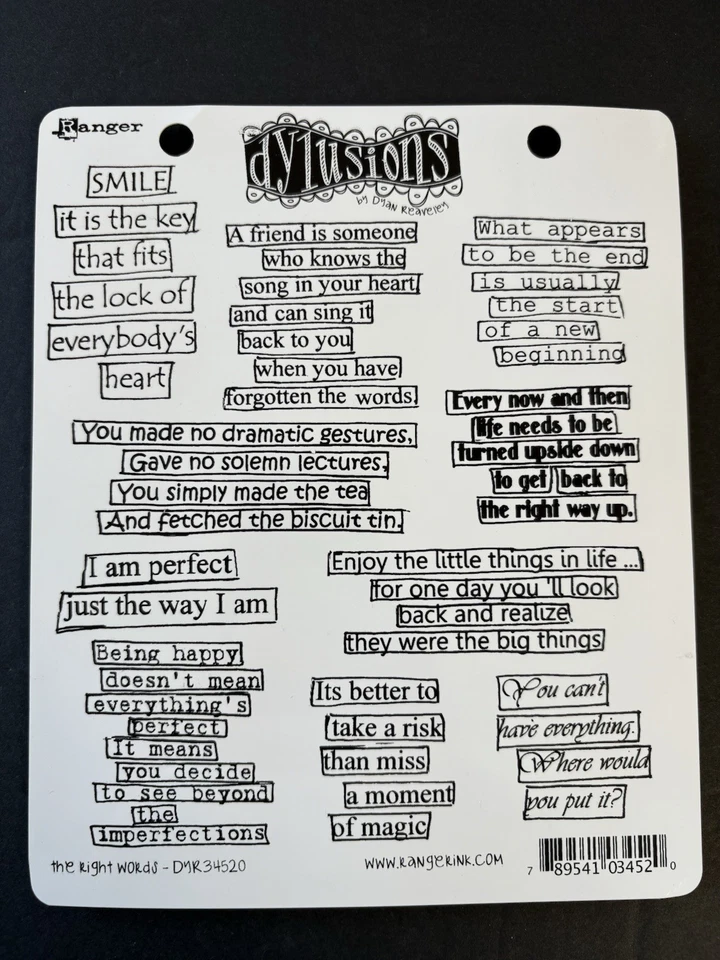 Ranger
dylusions
by Dyan Reaveley
SMILE
it is the key
that fits
the lock of
everybody's
heart
A friend is someone
who knows the
song in your heart
and can sing it
back to you
when you have
forgotten the words.
What appears
to be the end
is usually
the start
of a new
beginning
Every now and then
life needs to be
turned upside down
to get back to
the right way up.
You made no dramatic gestures,
Gave no solemn lectures,
You simply made the tea
And fetched the biscuit tin.
I am perfect
just the way I am
Enjoy the little things in life ...
for one day you 'll look
back and realize
they were the big things
Being happy
doesn't mean
everything's
perfect
It means
you decide
to see beyond
the
imperfections
Its better to
take a risk
than miss
a moment
of magic
You can't
have everything.
Where would
you put it?
the Right Words - DYR34520
www.RangerInk.com
7 89541 03452 0